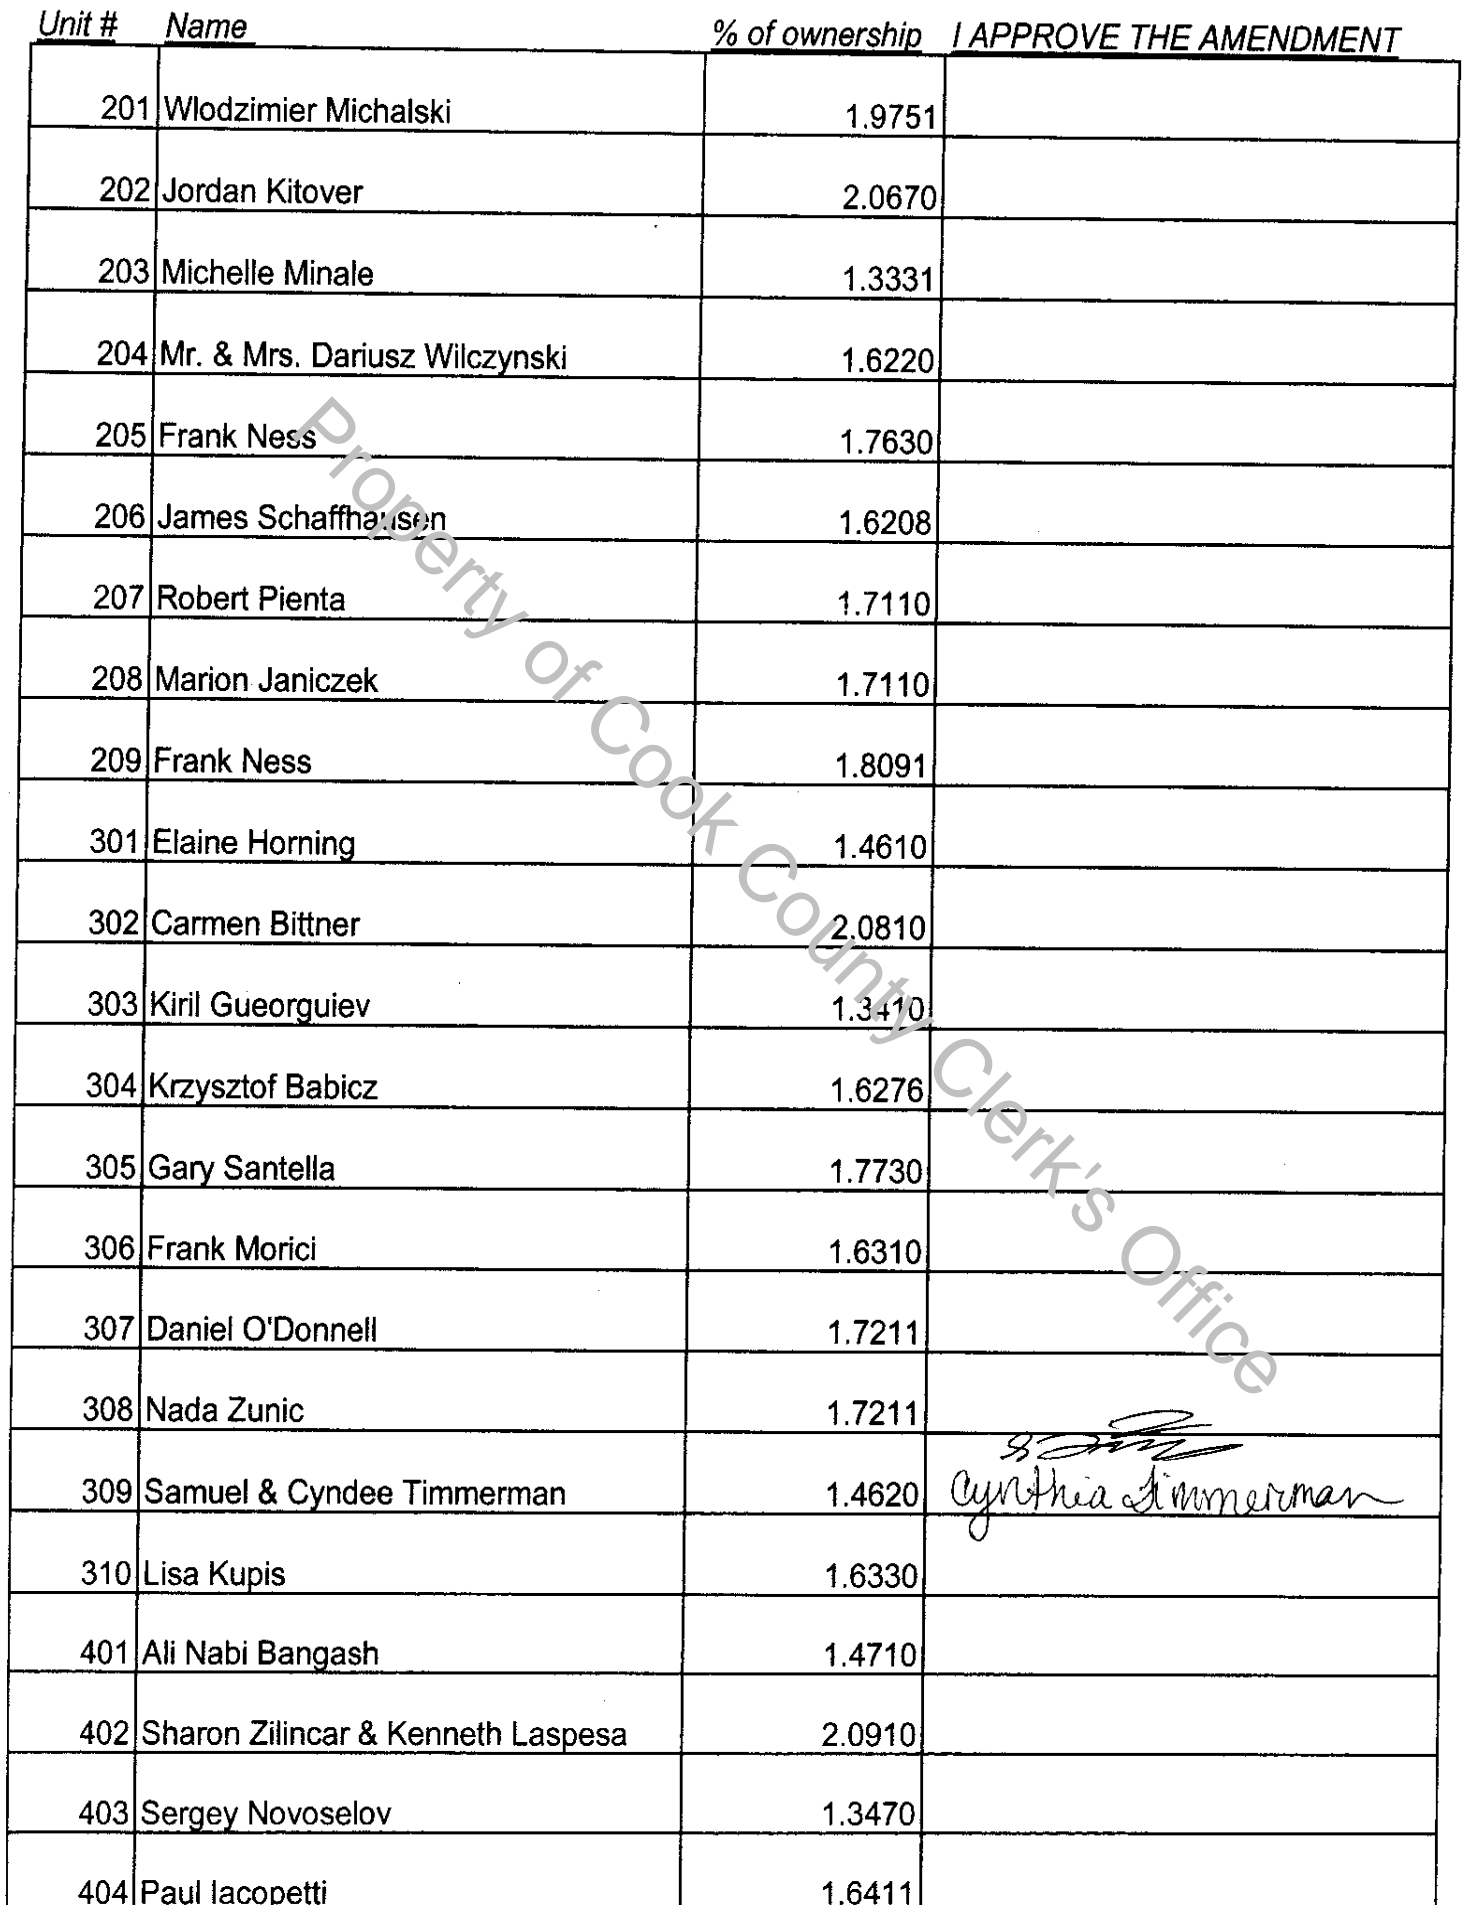 Unit # Name % of ownership I APPROVE THE AMENDMENT
201 Wlodzimier Michalski 1.9751
202 Jordan Kitover 2.0670
203 Michelle Minale 1.3331
204 Mr. & Mrs. Dariusz Wilczynski 1.6220
205 Frank Ness 1.7630
206 James Schaffhausen 1.6208
207 Robert Pienta 1.7110
208 Marion Janiczek 1.7110
209 Frank Ness 1.8091
301 Elaine Horning 1.4610
302 Carmen Bittner 2.0810
303 Kiril Gueorguiev 1.3410
304 Krzysztof Babicz 1.6276
305 Gary Santella 1.7730
306 Frank Morici 1.6310
307 Daniel O'Donnell 1.7211
308 Nada Zunic 1.7211
309 Samuel & Cyndee Timmerman 1.4620 Cynthia Timmerman
310 Lisa Kupis 1.6330
401 Ali Nabi Bangash 1.4710
402 Sharon Zilincar & Kenneth Laspesa 2.0910
403 Sergey Novoselov 1.3470
404 Paul Iacopetti 1.6411
Property of Cook County Clerk's Office